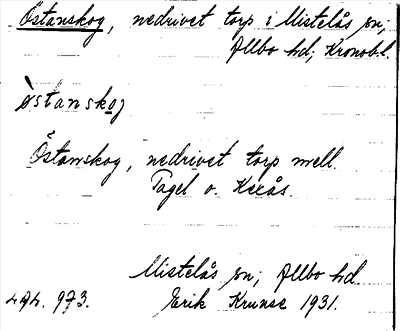 Östanskog, nedrivet torp i Mistelås sn;
Allbo hd; Kronobl.
östanskog
Östanskog, nedrivet torp mell.
Tagel o. Kexås.
Mistelås sn; Allbo hd.
973. Erik Krunse 1931.